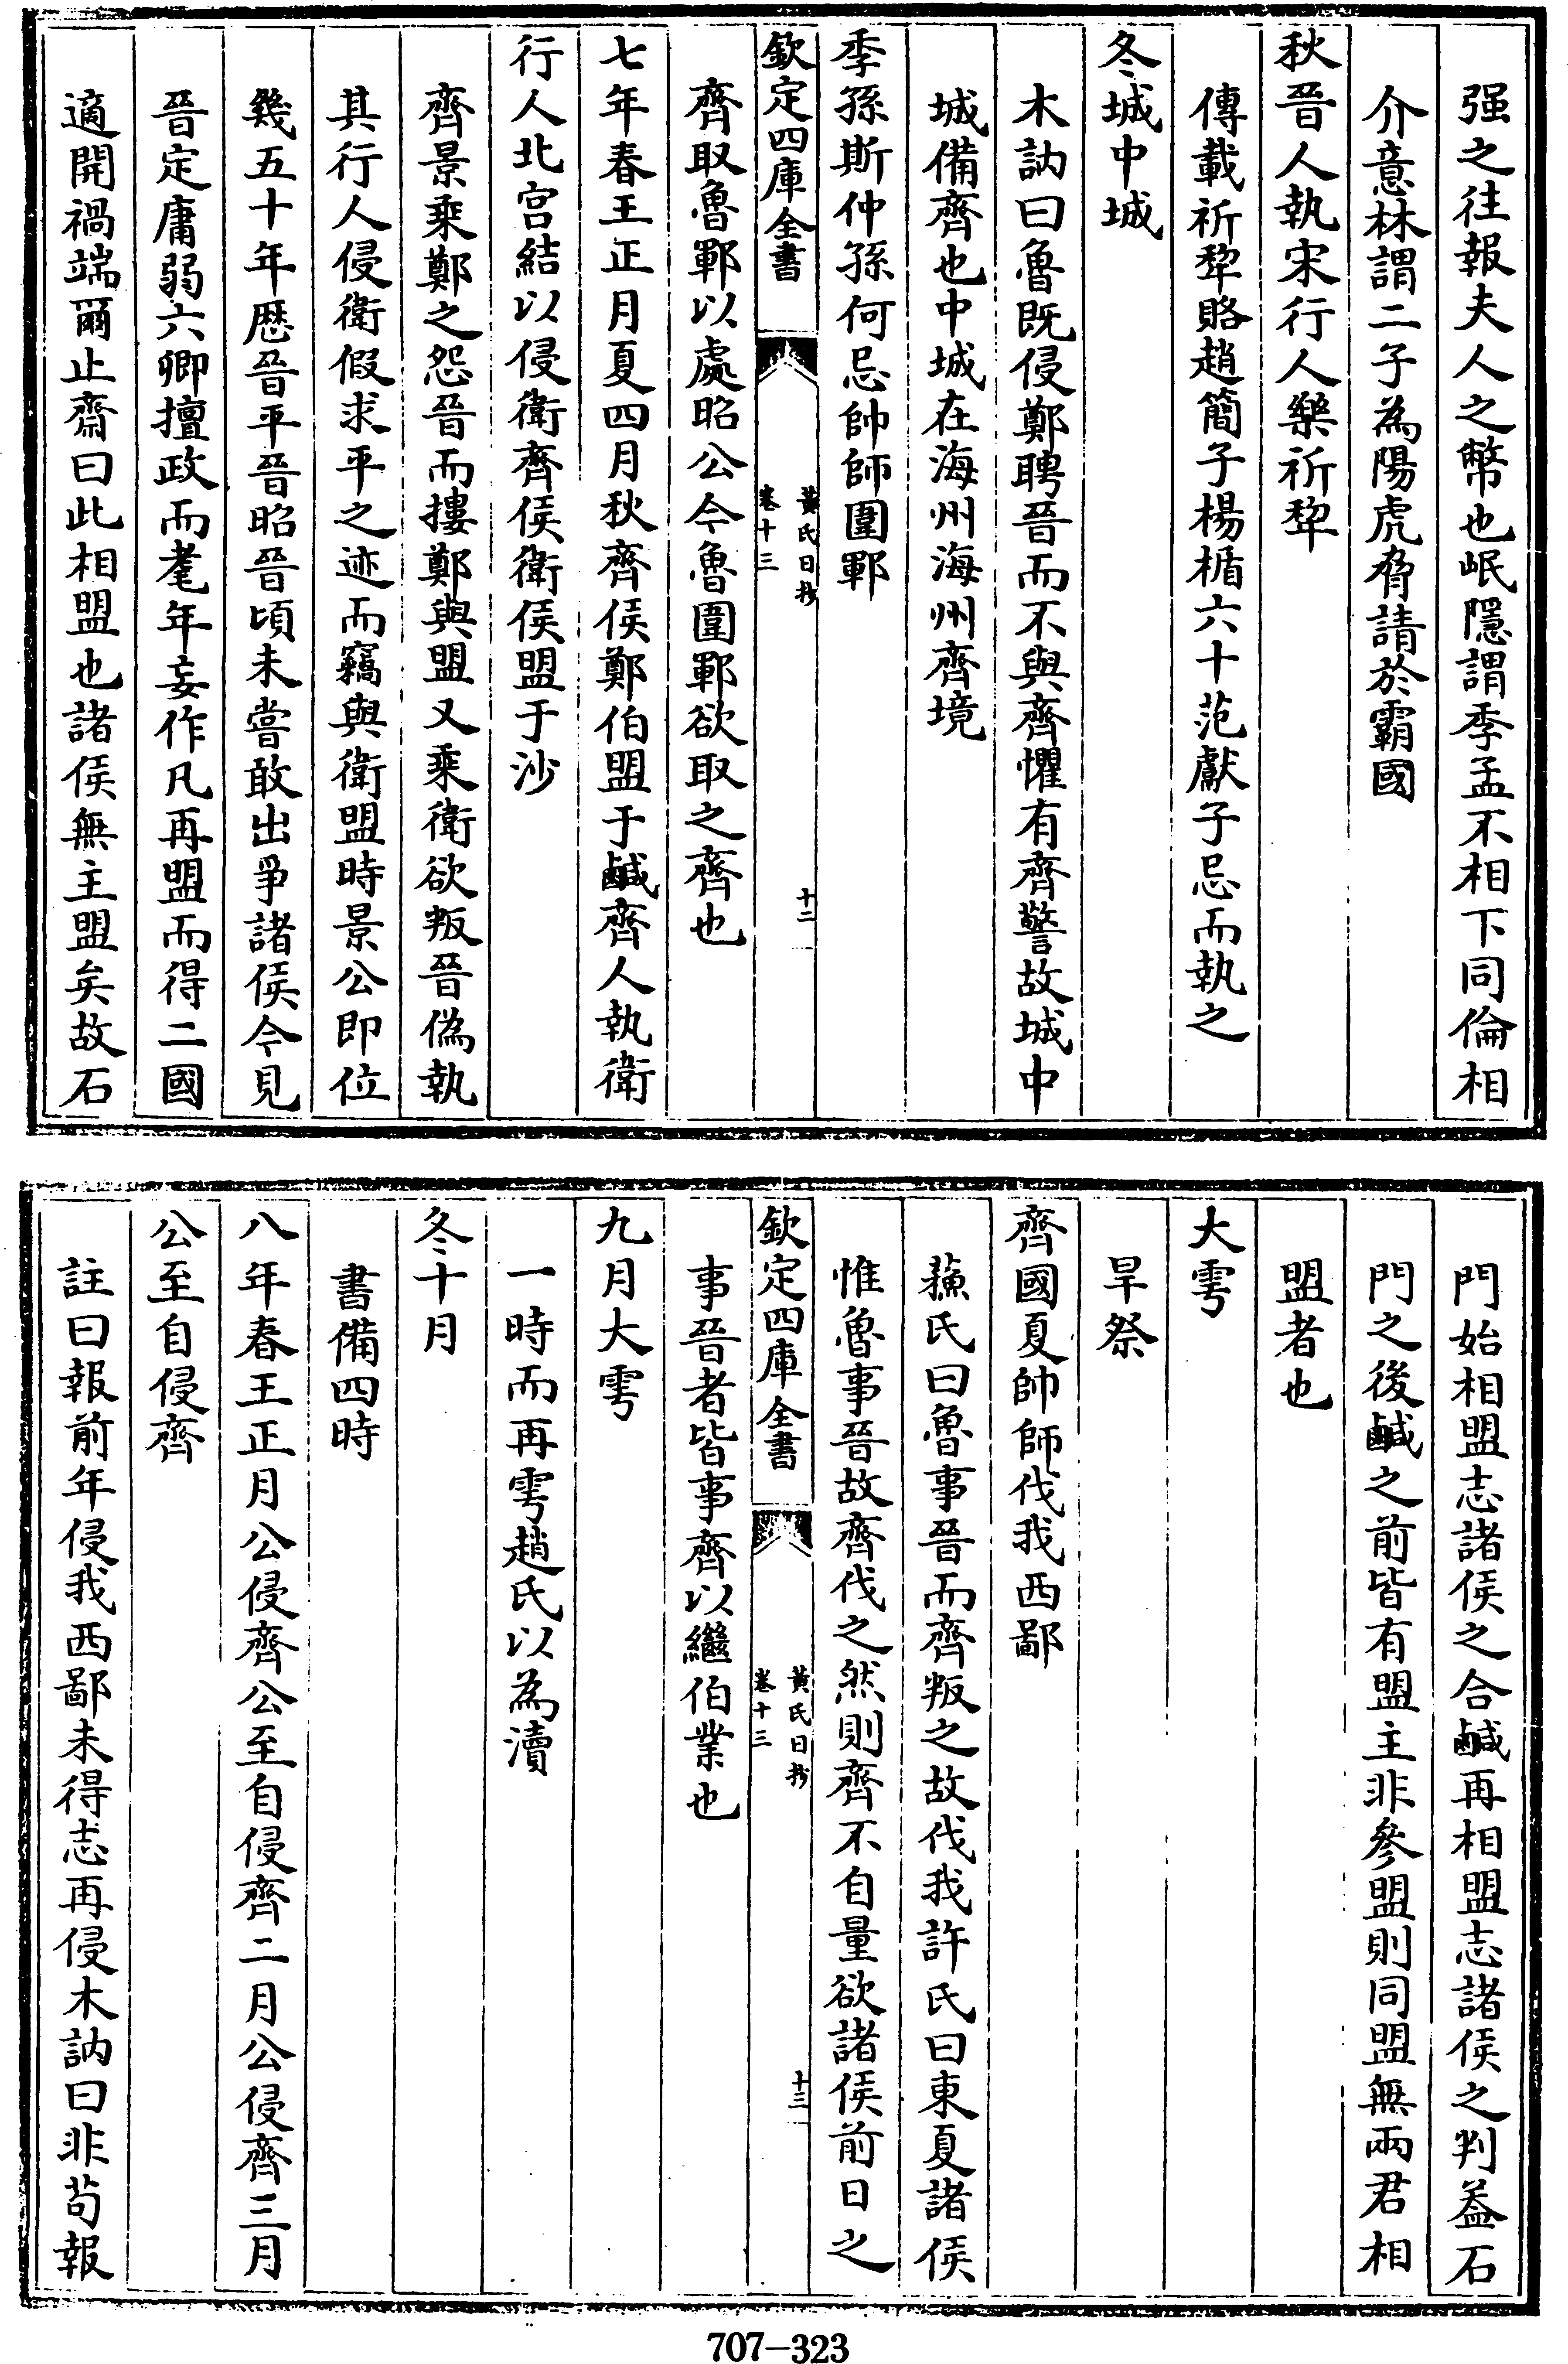 强之往報夫人之幣也岷隱謂季孟不相下同倫相
介意林謂二子為陽虎脅請於霸國
秋晉人執宋行人樂祈犂
傳載祈犂賂趙簡子楊楯六十范獻子忌而執之
冬城中城
木訥曰魯既侵鄭聘晉而不與齊懼有齊警故城中
城備齊也中城在海州海州齊境
季孫斯仲孫何忌帥師圍鄆
欽定四庫全書
黃氏日抄
卷十三
十二
齊取魯鄆以處昭公今魯圍鄆欲取之齊也
七年春王正月夏四月秋齊侯鄭伯盟于鹹齊人執衛
行人北宫結以侵衛齊侯衛侯盟于沙
齊景乘鄭之怨晉而摟鄭與盟又乘衛欲叛晉偽執
其行人侵衛假求平之迹而竊與衛盟時景公即位
幾五十年歴晉平晉昭晉頃未嘗敢出爭諸侯今見
晉定庸弱六卿擅政而耄年妄作凡再盟而得二國
適開禍端爾止齋曰此相盟也諸侯無主盟矣故石
門始相盟志諸侯之合鹹再相盟志諸侯之判蓋石
門之後鹹之前皆有盟主非參盟則同盟無兩君相
盟者也
大雩
旱祭
齊國夏帥師伐我西鄙
蘓氏曰魯事晉而齊叛之故伐我許氏曰東夏諸侯
惟魯事晉故齊伐之然則齊不自量欲諸侯前日之
欽定四庫全書
黃氏日抄
卷十三
十三
事晉者皆事齊以繼伯業也
九月大雩
一時而再雩趙氏以為瀆
冬十月
書備四時
八年春王正月公侵齊公至自侵齊二月公侵齊三月
公至自侵齊
註曰報前年侵我西鄙未得志再侵木訥曰非苟報
707-323